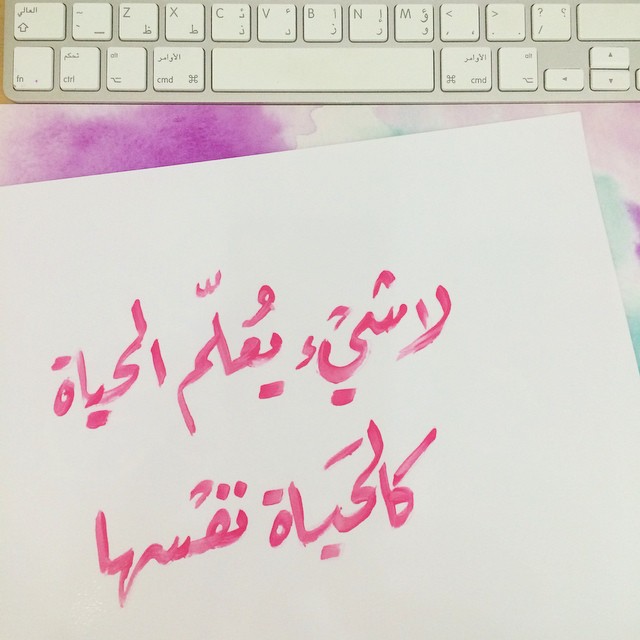 العالي ~ Z X C V B N M < > ? ؟
fn تحكم ctrl alt الأوامر cmd ⌘ ⌘ الأوامر cmd alt
لا شيء يُعلّم الحياة
كالحَياة نفْسها